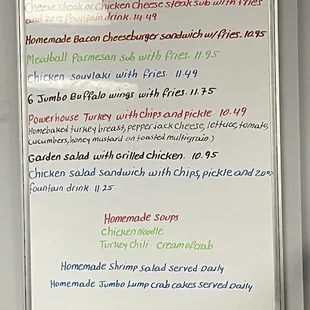 Cheesesteak or Chicken Cheesesteak sub with fries
and 20oz fountain drink. 14.49
Homemade Bacon Cheeseburger sandwich w/fries. 10.95
Meatball Parmesan sub with fries. 11.95
Chicken souvlaki with fries. 11.49
6 Jumbo Buffalo wings with fries. 11.75
Powerhouse Turkey with chips and pickle. 10.49
(Homebaked turkey breast, pepper jack cheese, lettuce, tomato,
cucumbers, honey mustard on toasted multigrain.)
Garden salad with Grilled chicken. 10.95
Chicken salad sandwich with chips, pickle and 20oz
fountain drink 11.25
Homemade Soups
Chicken Noodle
Turkey Chili Cream of Crab
Homemade Shrimp Salad Served Daily
Homemade Jumbo Lump Crab cakes Served Daily